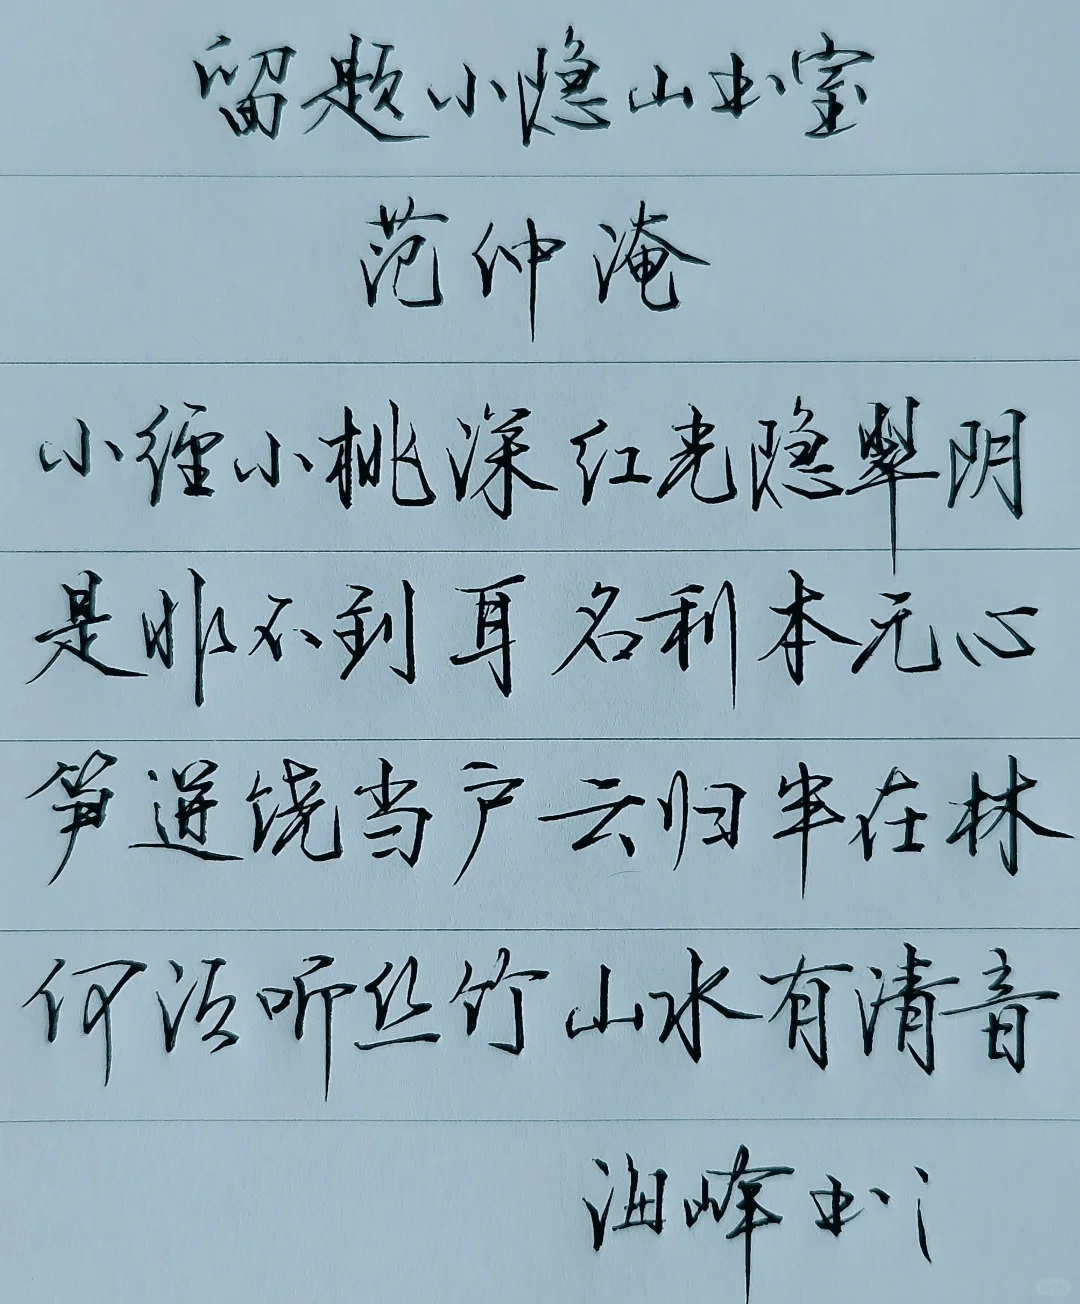 留题小隐山书室
范仲淹
小徑小桃深红光隐翠阴
是非不到耳名利本无心
笋迸饶当户云归半在林
何须听丝竹山水有清音
海峰书